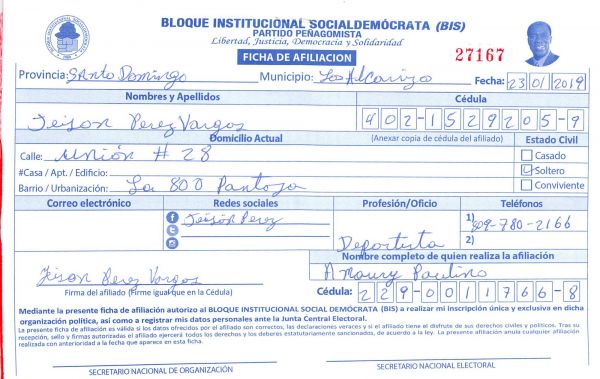 BLOQUE INSTITUCIONAL SOCIALDEMÓCRATA (BIS)
PARTIDO PEÑAGOMISTA
Libertad, Justicia, Democracia y Solidaridad
FICHA DE AFILIACION
27167
Provincia: Santo Domingo Municipio: Los Alcarrizo Fecha: 23 01 2019
Nombres y Apellidos Cédula
Jeison Perez Vargas 402-1529205-9
Domicilio Actual (Anexar copia de cédula del afiliado) Estado Civil
Calle: Unión # 28 Casado
#Casa / Apt. / Edificio: Soltero
Barrio / Urbanización: La 800 Pantoja Conviviente
Correo electrónico Redes sociales Profesión/Oficio Teléfonos
Jeison Perez 1) 809-780-2166
Deportista 2)
Nombre completo de quien realiza la afiliación
Jeison Perez Vargas Amaury Paulino
Firma del afiliado (Firme igual que en la Cédula) Cédula: 229-0011766-8
Mediante la presente ficha de afiliación autorizo al BLOQUE INSTITUCIONAL SOCIAL DEMÓCRATA (BIS) a realizar mi inscripción única y exclusiva en dicha
organización política, así como a registrar mis datos personales ante la Junta Central Electoral.
La presente ficha de afiliación es válida si los datos ofrecidos por el afiliado son correctos, las declaraciones veraces y si el afiliado tiene el disfrute de sus derechos civiles y políticos. Tras su
recepción, sello y firmas autorizadas el afiliado ejercerá todos los derechos y los deberes estatutariamente sancionados, de acuerdo a la ley. La presente afiliación anula cualquier afiliación
realizada con anterioridad a la fecha que aparece en esta ficha.
SECRETARIO NACIONAL DE ORGANIZACIÓN SECRETARIO NACIONAL ELECTORAL